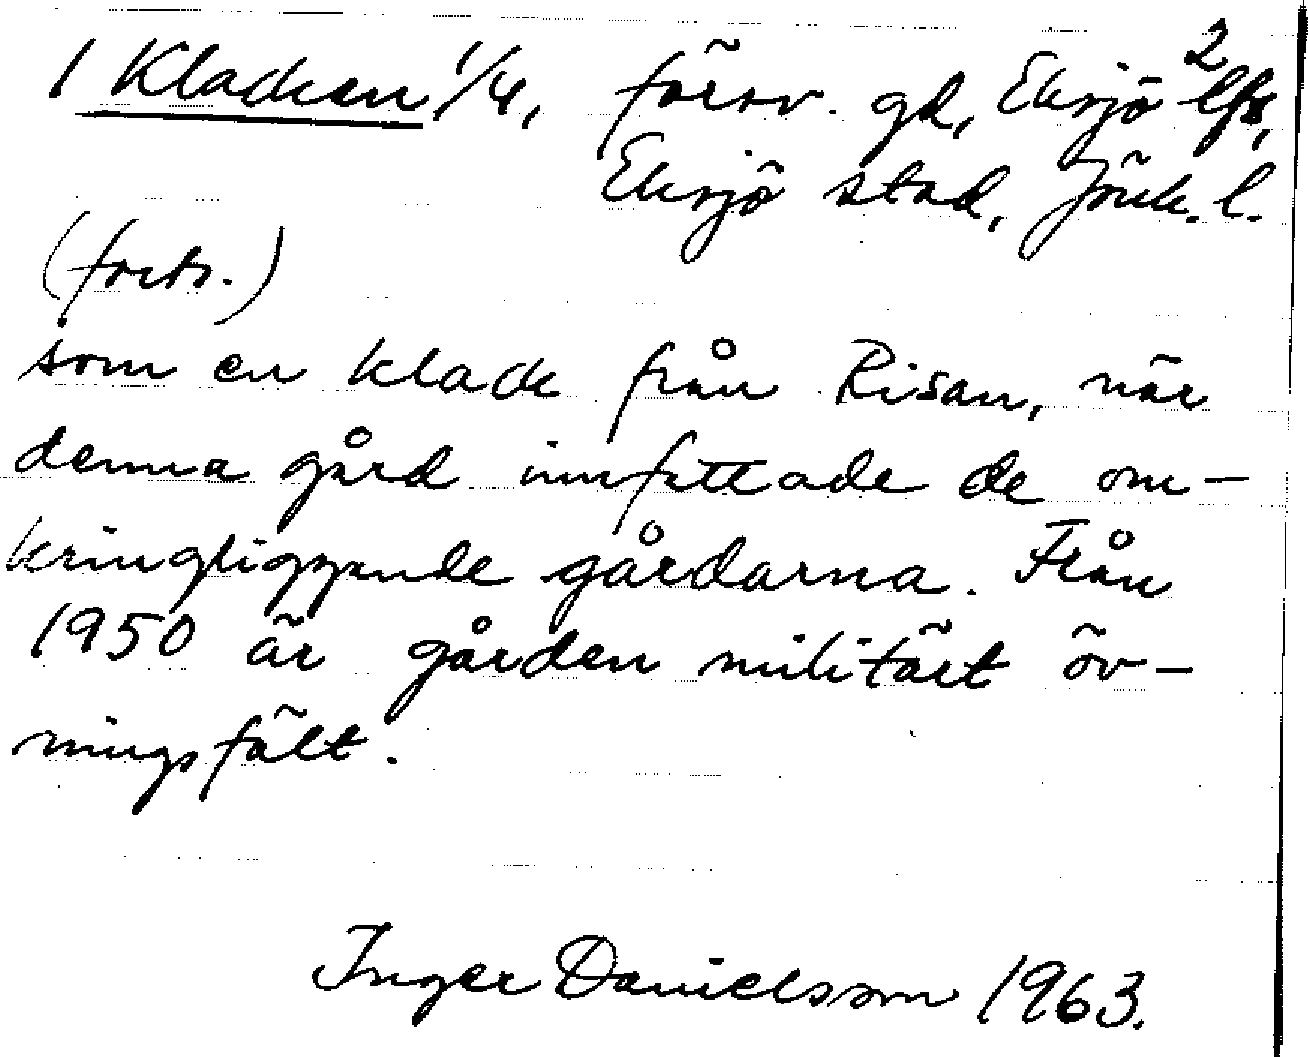 1 Klacken 1/4, försv. gd, Eksjö 2 lfs,
Eksjö stad, Jönk. l.
(forts.)
som en klack från Risan, när
denna gård innfattade de om-
kringliggande gårdarna. Från
1950 är gården militärt öv-
ningsfält.
Inger Danielsson 1963.